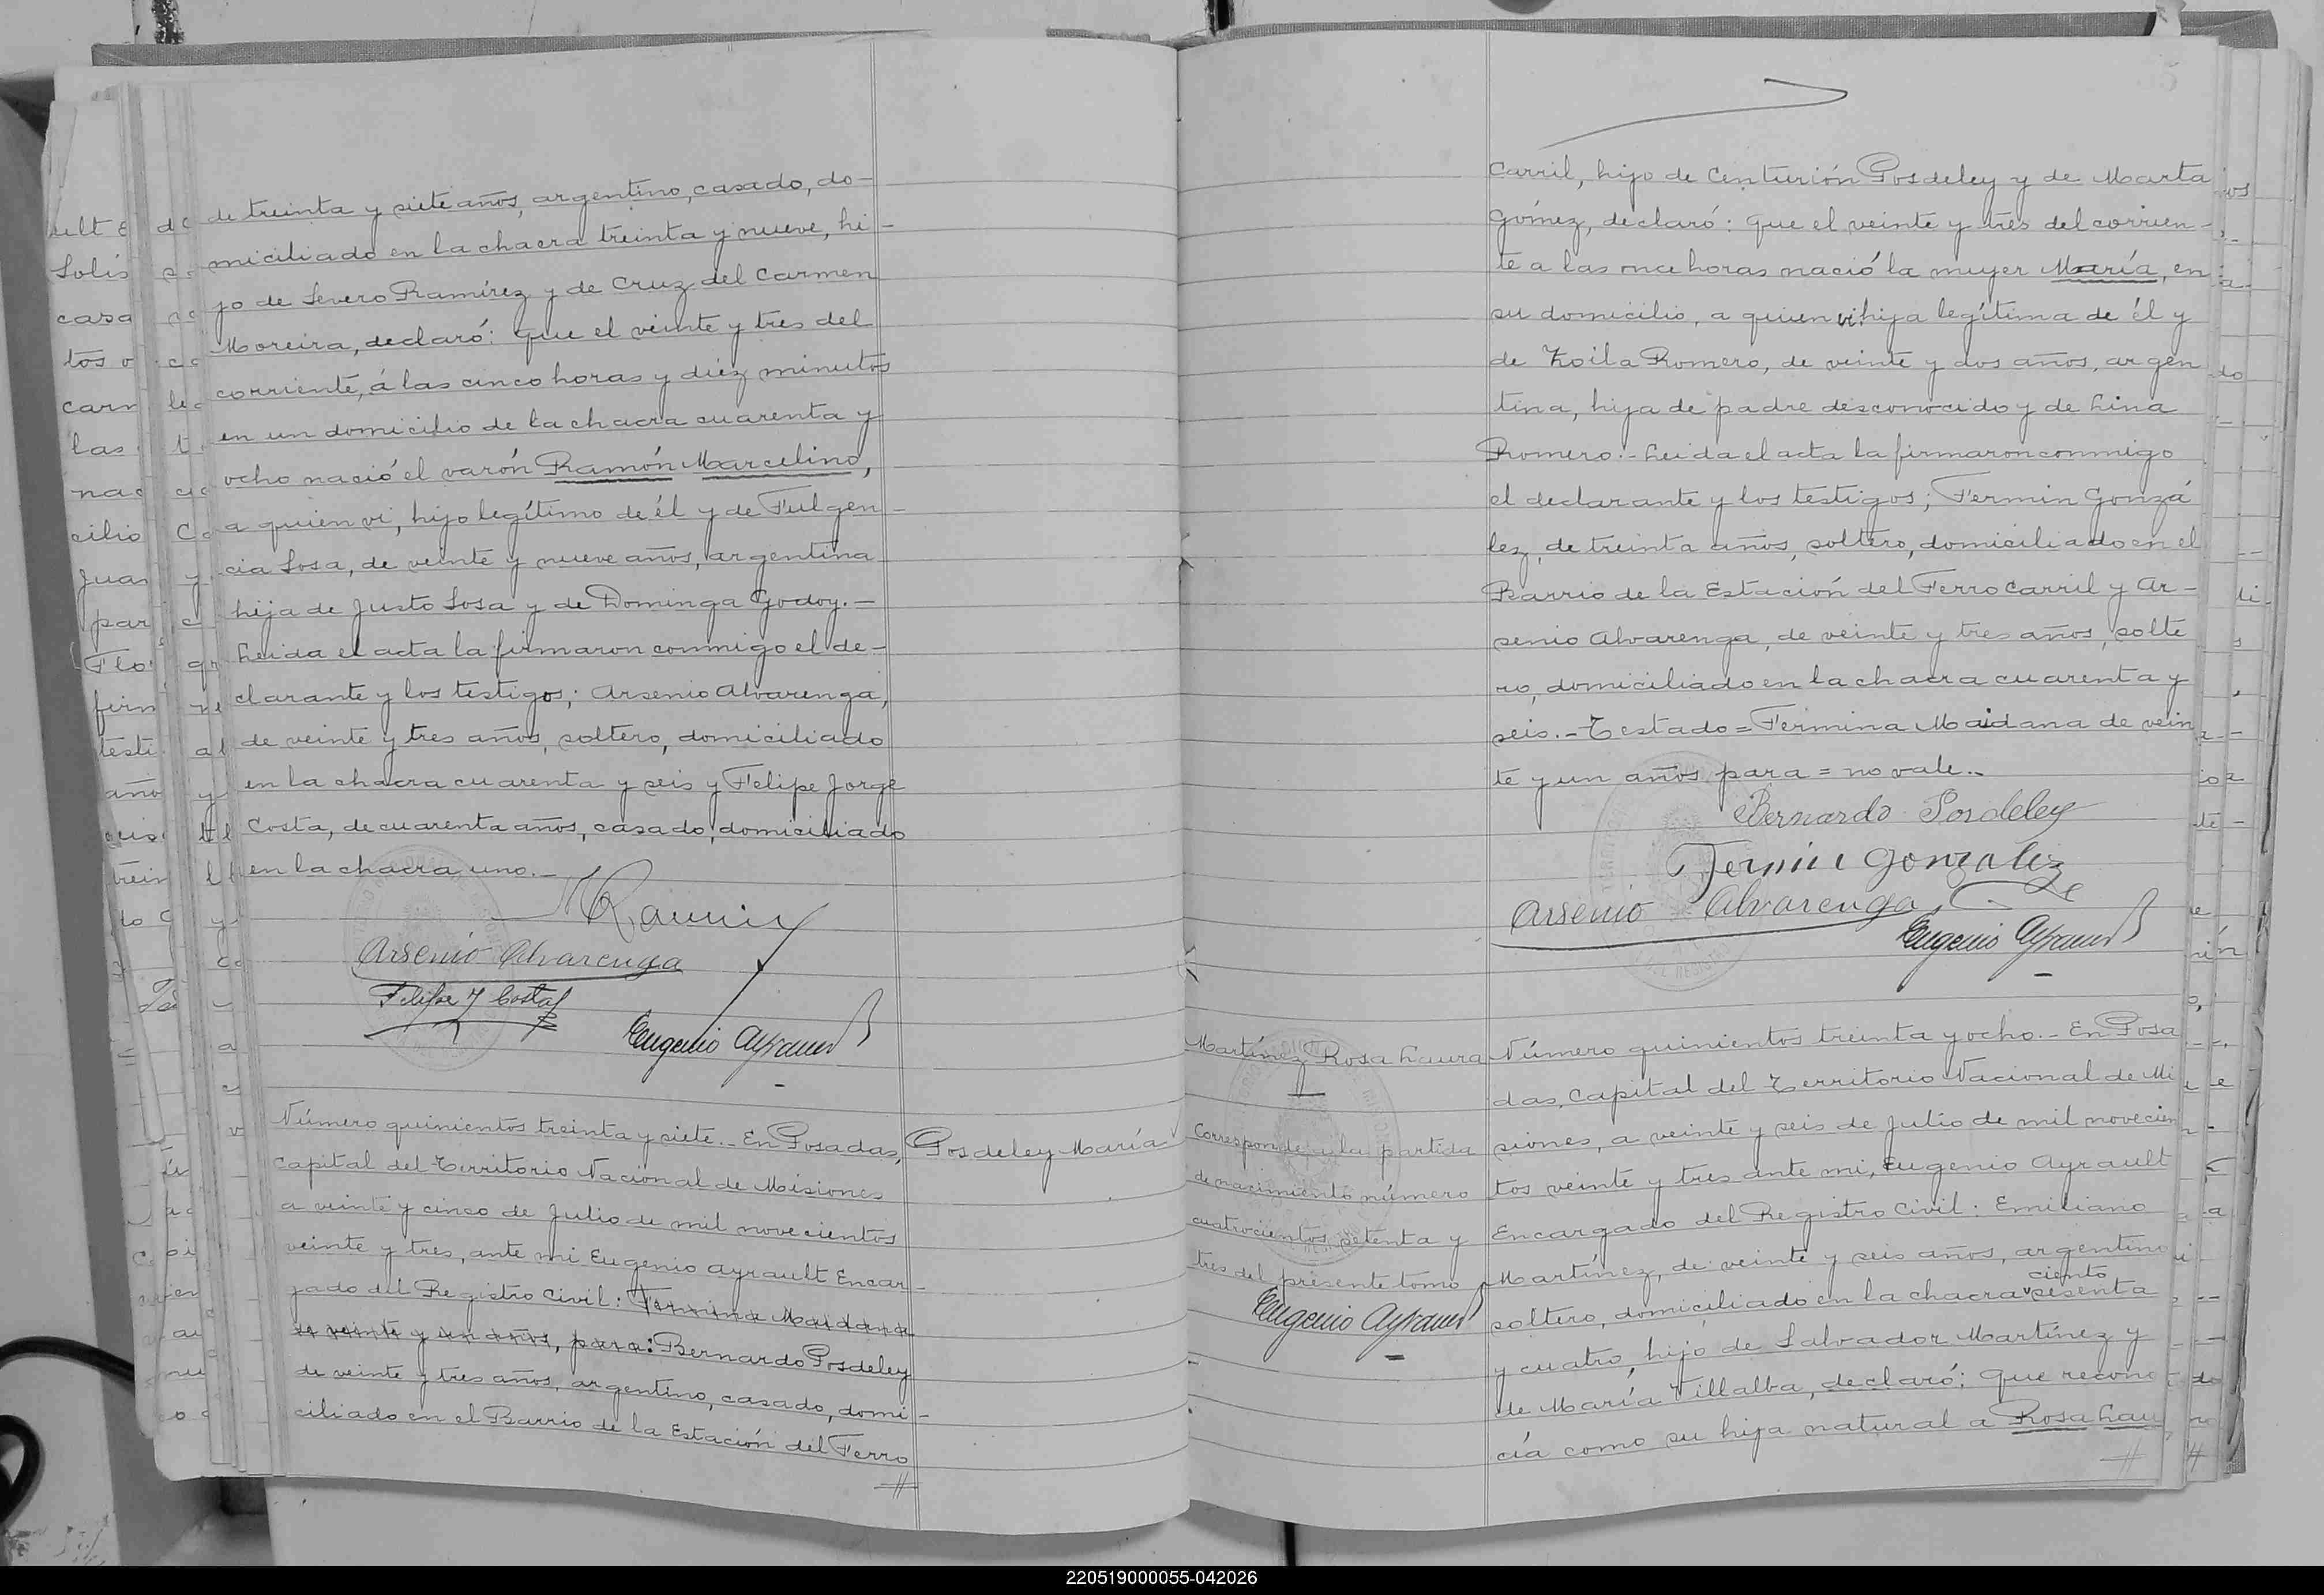 de treinta y siete años, argentino, casado, do-
miciliado en la chacra treinta y nueve, hi-
jo de Severo Ramírez y de Cruz del Carmen
Moreira, declaró: Que el veinte y tres del
corriente, á las cinco horas y diéz minutos
en un domicilio de la chacra cuarenta y
ocho nació el varón Ramón Marcelino,
a quien vi, hijo legítimo de él y de Fulgen-
cia Sosa, de veinte y nueve años, argentina
hija de Justo Sosa y de Dominga Godoy.-
Leida el acta la firmaron conmigo el de-
clarante y los testigos; Arsenio Alvarenga,
de veinte y tres años, soltero, domiciliado
en la chacra cuarenta y seis y Felipe Jorge
Costa, de cuarenta años, casado, domiciliado
en la chacra uno.-
Arsenio Alvarenga
Felipe J Costa
Eugenio Ayrault
Número quinientos treinta y siete.- En Posadas,
Posdeley María
Capital del Territorio Nacional de Misiones
a veinte y cinco de Julio de mil novecientos
veinte y tres, ante mi Eugenio Ayrault Encar-
gado del Registro Civil: Fermina Maidana
de veinte y un años, para: Bernardo Posdeley
de veinte y tres años, argentino, casado, domi-
ciliado en el Barrio de la Estación del Ferro
Carril, hijo de Centurión Posdeley y de Marta
Gómez, declaró: Que el veinte y tres del corrien-
te a las once horas nació la mujer María, en
su domicilio, a quien vi hija legítima de él y
de Zoila Romero, de veinte y dos años, argen
tina, hija de padre desconocido y de Lina
Romero.- Leida el acta la firmaron conmigo
el declarante y los testigos; Fermin Gonzá
lez, de treinta años, soltero, domiciliado en el
Barrio de la Estación del Ferro Carril y Ar-
senio Alvarenga, de veinte y tres años, solte
ro, domiciliado en la chacra cuarenta y
seis.- Testado = Fermina Maidana de vein
te y un años para = no vale.-
Bernardo Posdeley
Fermin Gonzalez
Arsenio Alvarenga
Eugenio Ayrault
Martínez Rosa Laura
Corresponde a la partida
de nacimiento número
cuatrocientos setenta y
tres del presente tomo
Eugenio Ayrault
Número quinientos treinta y ocho.- En Posa
das, Capital del Territorio Nacional de Mi
siones, a veinte y seis de Julio de mil novecien
tos veinte y tres ante mi, Eugenio Ayrault
Encargado del Registro Civil: Emiliano
Martínez, de veinte y seis años, argentino
ciento
soltero, domiciliado en la chacra sesenta
y cuatro, hijo de Salvador Martínez y
de María Villalba, declaró: Que recono
cía como su hija natural a Rosa Lau
220519000055-042026